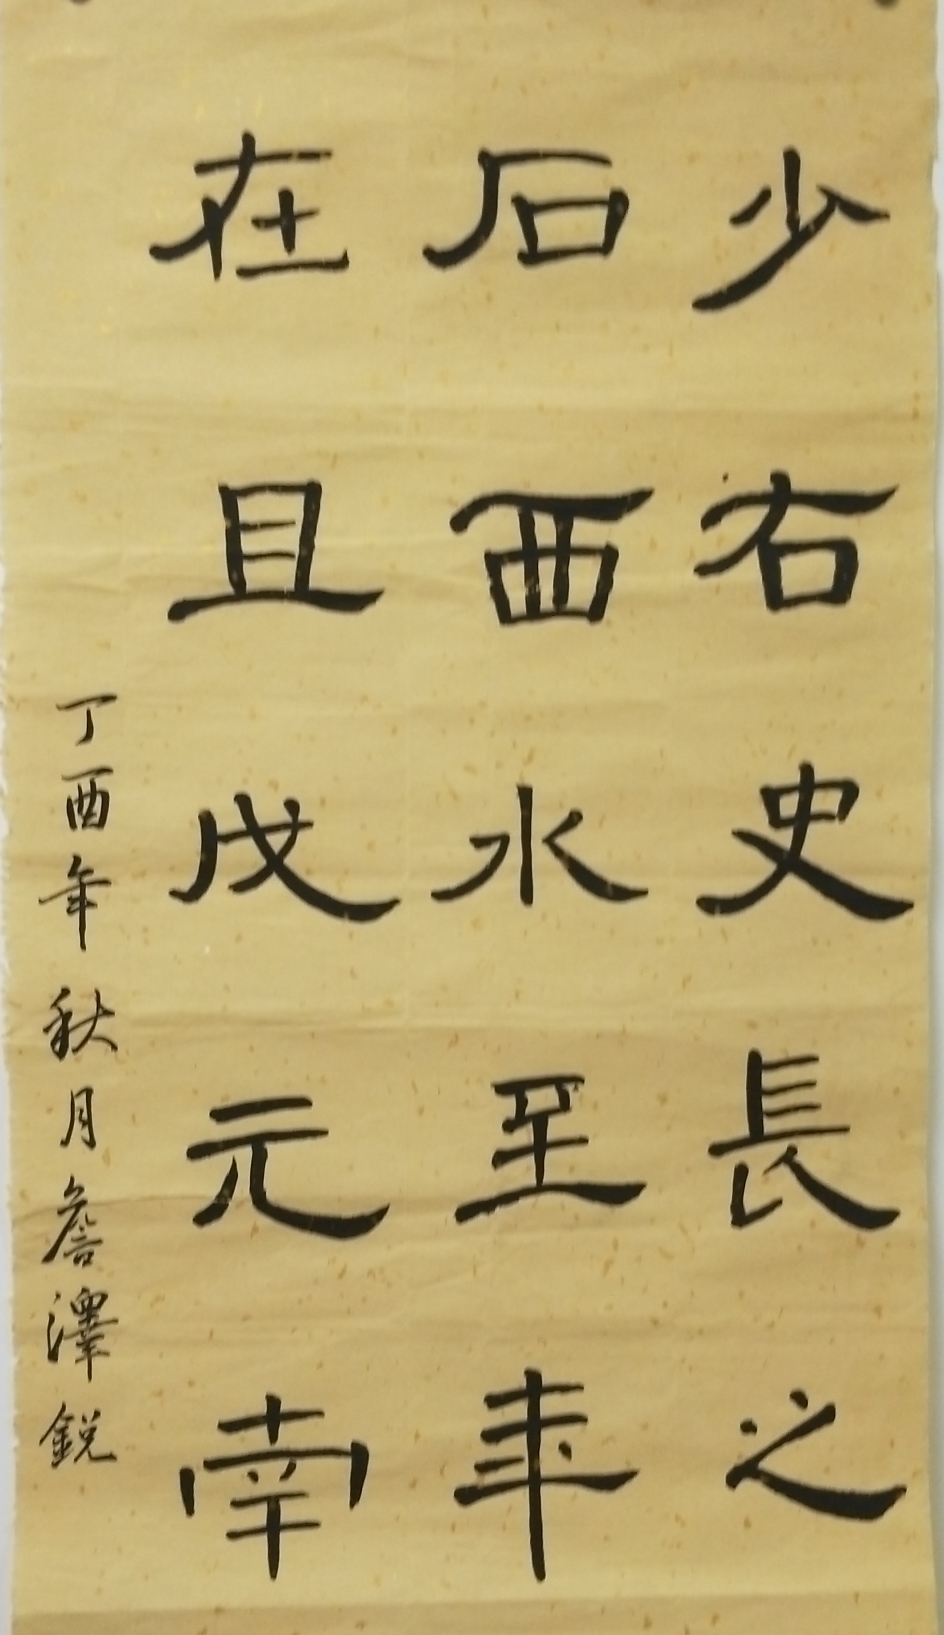 少右史長之
石西水至年
在且戊元南
丁酉年秋月詹澤銳